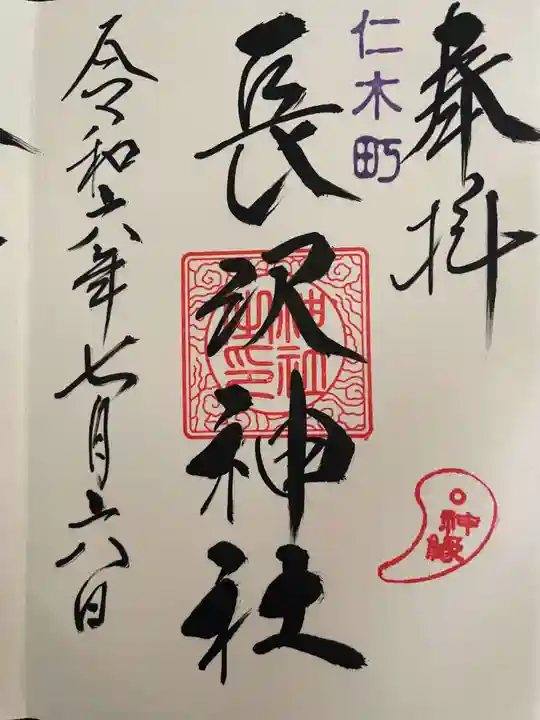 奉拝
仁木町
長沢神社
神社之印
神縁
令和六年七月六日